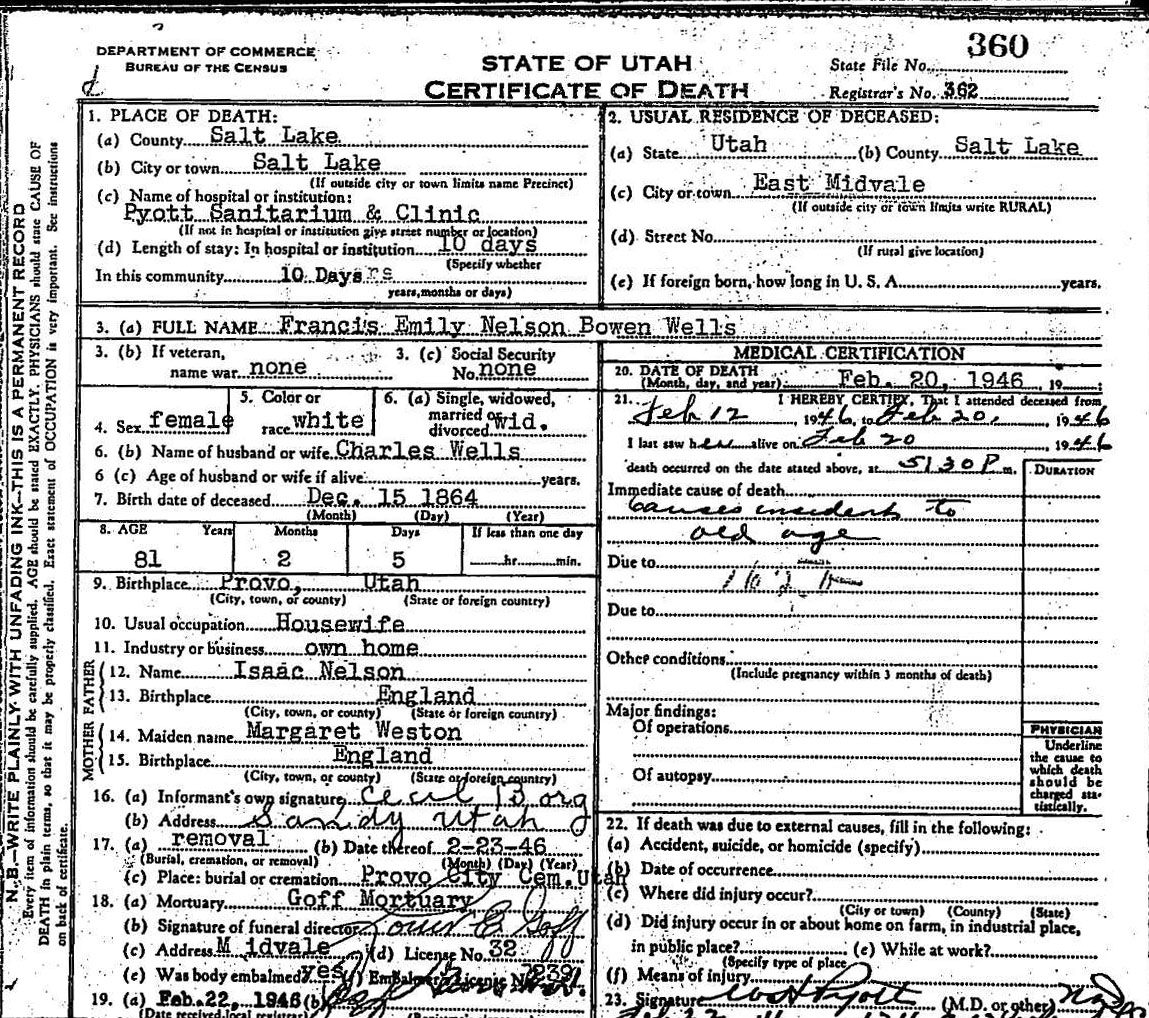 DEPARTMENT OF COMMERCE
BUREAU OF THE CENSUS
d
STATE OF UTAH
CERTIFICATE OF DEATH
360
State File No.
Registrar's No. 362
N. B.—WRITE PLAINLY WITH UNFADING INK—THIS IS A PERMANENT RECORD
Every item of information should be carefully supplied. AGE should be stated EXACTLY. PHYSICIANS should state CAUSE OF
DEATH in plain terms, so that it may be properly classified. Exact statement of OCCUPATION is very important. See instructions
on back of certificate.
1. PLACE OF DEATH:
(a) County Salt Lake
(b) City or town Salt Lake
(If outside city or town limits name Precinct)
(c) Name of hospital or institution:
Pyott Sanitarium & Clinic
(If not in hospital or institution give street number or location)
(d) Length of stay: In hospital or institution 10 days
(Specify whether
In this community 10 Days
years, months or days)
2. USUAL RESIDENCE OF DECEASED:
(a) State Utah (b) County Salt Lake
(c) City or town East Midvale
(If outside city or town limits write RURAL)
(d) Street No.
(If rural give location)
(e) If foreign born, how long in U. S. A. years.
3. (a) FULL NAME Francis Emily Nelson Bowen Wells
3. (b) If veteran,
name war none
3. (c) Social Security
No. none
4. Sex female
5. Color or
race white
6. (a) Single, widowed,
married or
divorced wid.
6. (b) Name of husband or wife Charles Wells
6 (c) Age of husband or wife if alive years.
7. Birth date of deceased Dec. 15 1864
(Month) (Day) (Year)
8. AGE Years Months Days If less than one day
81 2 5 hr. min.
9. Birthplace Provo, Utah
(City, town, or county) (State or foreign country)
10. Usual occupation Housewife
11. Industry or business own home
FATHER
12. Name Isaac Nelson
13. Birthplace England
(City, town, or county) (State or foreign country)
MOTHER
14. Maiden name Margaret Weston
15. Birthplace England
(City, town, or county) (State or foreign country)
16. (a) Informant's own signature Cecil Borg
(b) Address Sandy Utah
17. (a) removal (b) Date thereof 2-23-46
(Burial, cremation, or removal) (Month) (Day) (Year)
(c) Place: burial or cremation Provo City Cem. Utah
18. (a) Mortuary Goff Mortuary
(b) Signature of funeral director Goff
(c) Address Midvale (d) License No. 32
(e) Was body embalmed yes Embalmer's License No. 239
19. (a) Feb. 22, 1946 (b)
(Date received local registrar)
MEDICAL CERTIFICATION
20. DATE OF DEATH
(Month, day, and year) Feb. 20, 1946, 19
21. I HEREBY CERTIFY, That I attended deceased from
Feb 12 1946, to Feb 20, 1946
I last saw her alive on Feb 20 1946
death occurred on the date stated above, at 5:30 P m.
DURATION
Immediate cause of death
causes incident to
old age
Due to
Due to
Other conditions
(Include pregnancy within 3 months of death)
Major findings:
Of operations
Of autopsy
PHYSICIAN
Underline
the cause to
which death
should be
charged sta-
tistically.
22. If death was due to external causes, fill in the following:
(a) Accident, suicide, or homicide (specify)
(b) Date of occurrence
(c) Where did injury occur?
(City or town) (County) (State)
(d) Did injury occur in or about home on farm, in industrial place,
in public place? (e) While at work?
(Specify type of place
(f) Means of injury
23. Signature Pyott (M.D. or other)